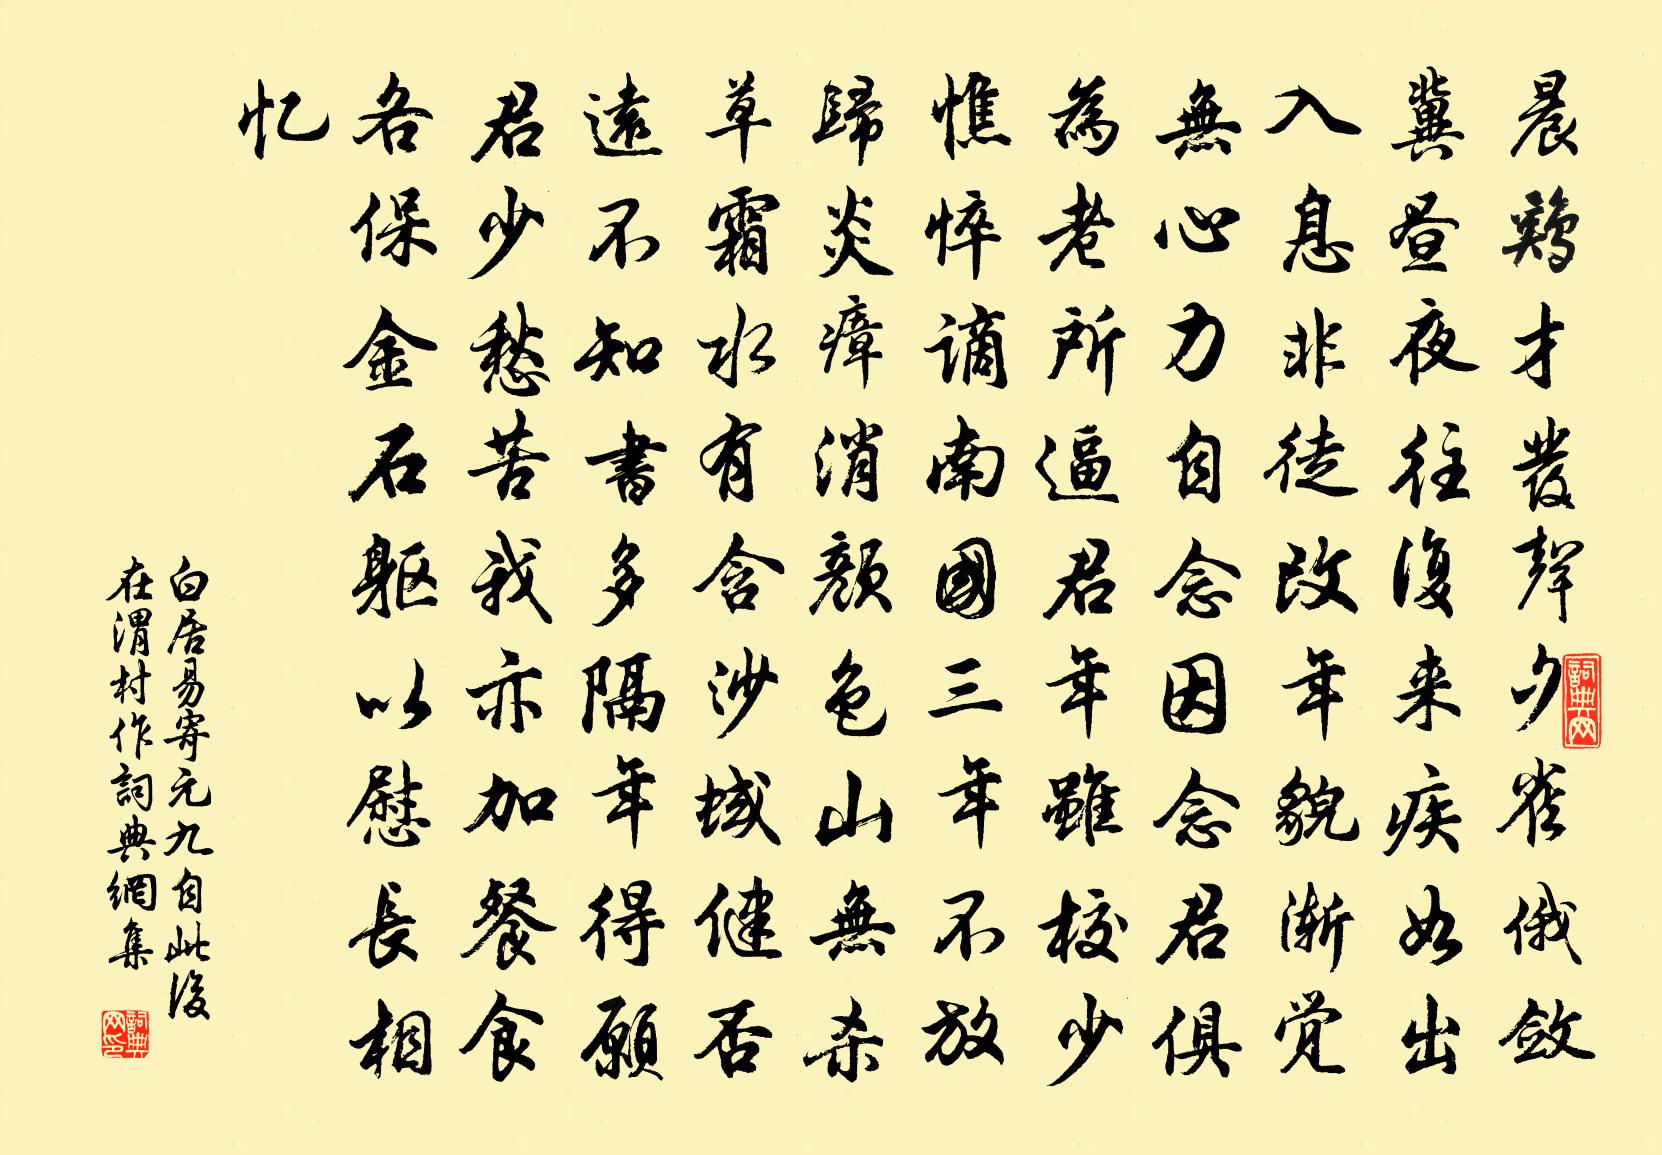 晨鷄才發聲夕雀俄斂
冀昼夜往復来疾如出
入息非徒改年貌漸觉
無心力自念因念君俱
為老所逼君年雖校少
憔悴謫南國三年不放
歸炎瘴消顔色山無杀
草霜水有含沙域健否
遠不知書多隔年得願
君少愁苦我亦加餐食
各保金石躯以慰長相
忆
白居易寄元九自此後
在渭村作詞典網集
詞典网
詞典网